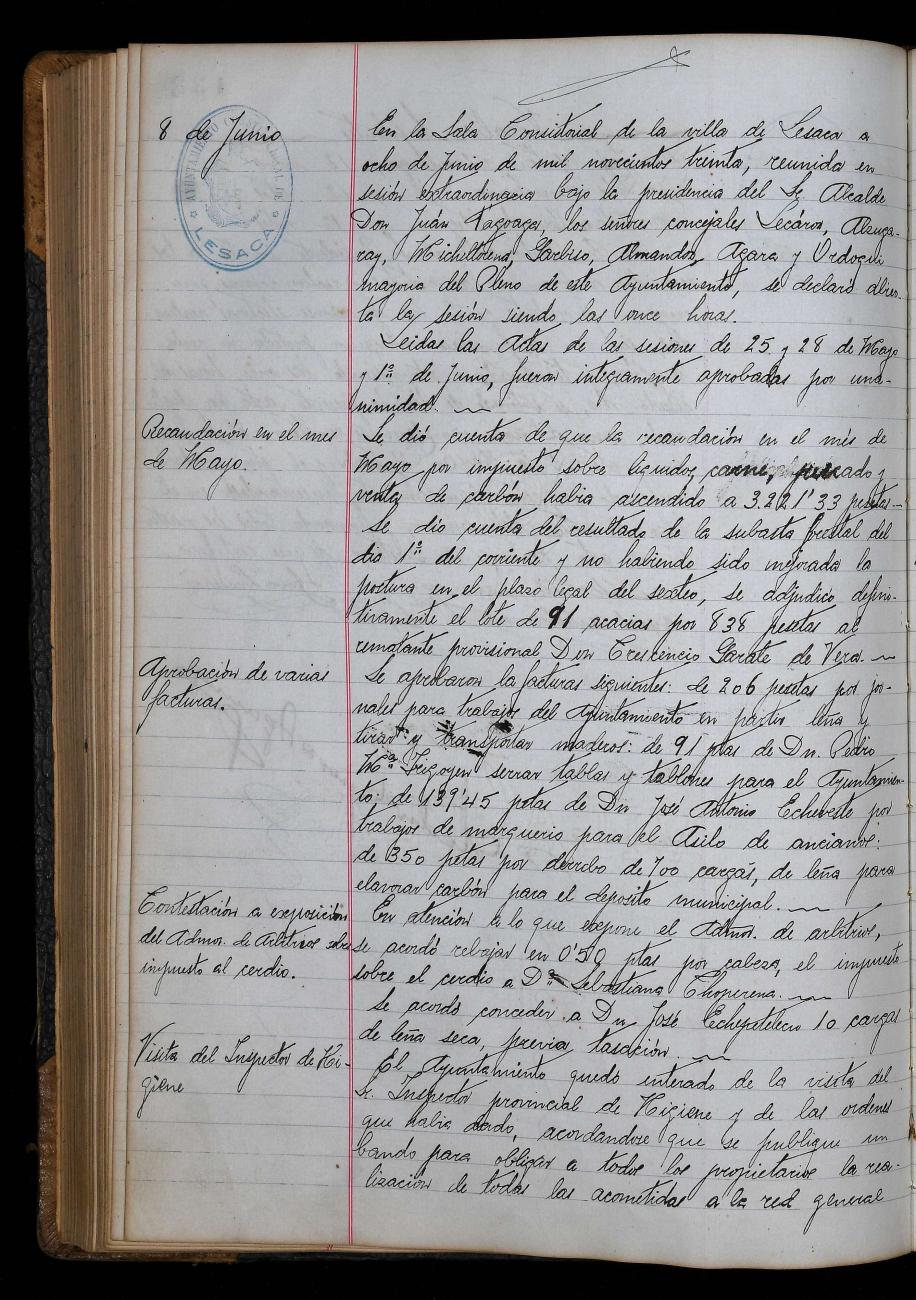 8 de Junio
AYUNTAMIENTO
LESACA
En la Sala Consistorial de la villa de Lesaca a
ocho de Junio de mil novecientos treinta, reunida en
sesión extraordinaria bajo la presidencia del Sr. Alcalde
Don Juán Tagoaga, los señores concejales Lecároz, Alzuga-
ray, Michelltorena, Garbiso, Almandoz, Agara y Ordoqui
mayoria del Pleno de este Ayuntamiento, se declaró abier-
ta la sesión siendo las once horas.
Leidas las Actas de las sesiones de 25 y 28 de Mayo
y 1º de Junio, fueron integramente aprobadas por una-
nimidad.
Recaudación en el mes
de Mayo.
Se dió cuenta de que la recaudación en el més de
Mayo por impuesto sobre liquidos, carne, pescado y
venta de carbón habia ascendido a 3.221'33 pesetas-
Se dio cuenta del resultado de la subasta forestal del
dia 1º del corriente y no habiendo sido mejorada la
postura en el plazo legal del sexteo, se adjudicó defini-
tivamente el lote de 91 acacias por 838 pesetas al
rematante provisional Don Crescencio Gárate de Vera.
Aprobación de varias
facturas.
Se aprobaron la facturas siguientes: de 206 pesetas por jor-
nales para trabajos del Ayuntamiento en partir leña y
tirar y transportar maderos: de 91 ptas de Dn. Pedro
Mª Irigoyen serrar tablas y tablones para el Ayuntamien-
to; de 139'45 ptas de Dn José Antonio Echeveste por
trabajos de marquerio para el Asilo de ancianos:
de 350 ptas por derribo de 700 cargas, de leña para
elavorar carbón para el deposito municipal.
Contestación a exposición
del Admor. de Arbitrios sobre
impuesto al cerdio.
En atención a lo que expone el Admor. de arbitrios,
se acordó rebajar en 0'50 ptas por cabeza, el impuesto
sobre el cerdio a Dª Sebastiana Choperena.
Se acordó conceder a Dn José Echepetelecu 10 cargas
de leña seca, previa tasación.
Visita del Inspector de Hi-
giene
El Ayuntamiento quedó enterado de la visita del
Sr. Inspector provincial de Higiene y de las ordenes
que habia dado, acordandose que se publique un
bando para obligar a todos los propietarios la rea-
lización de todas las acometidas a la red general